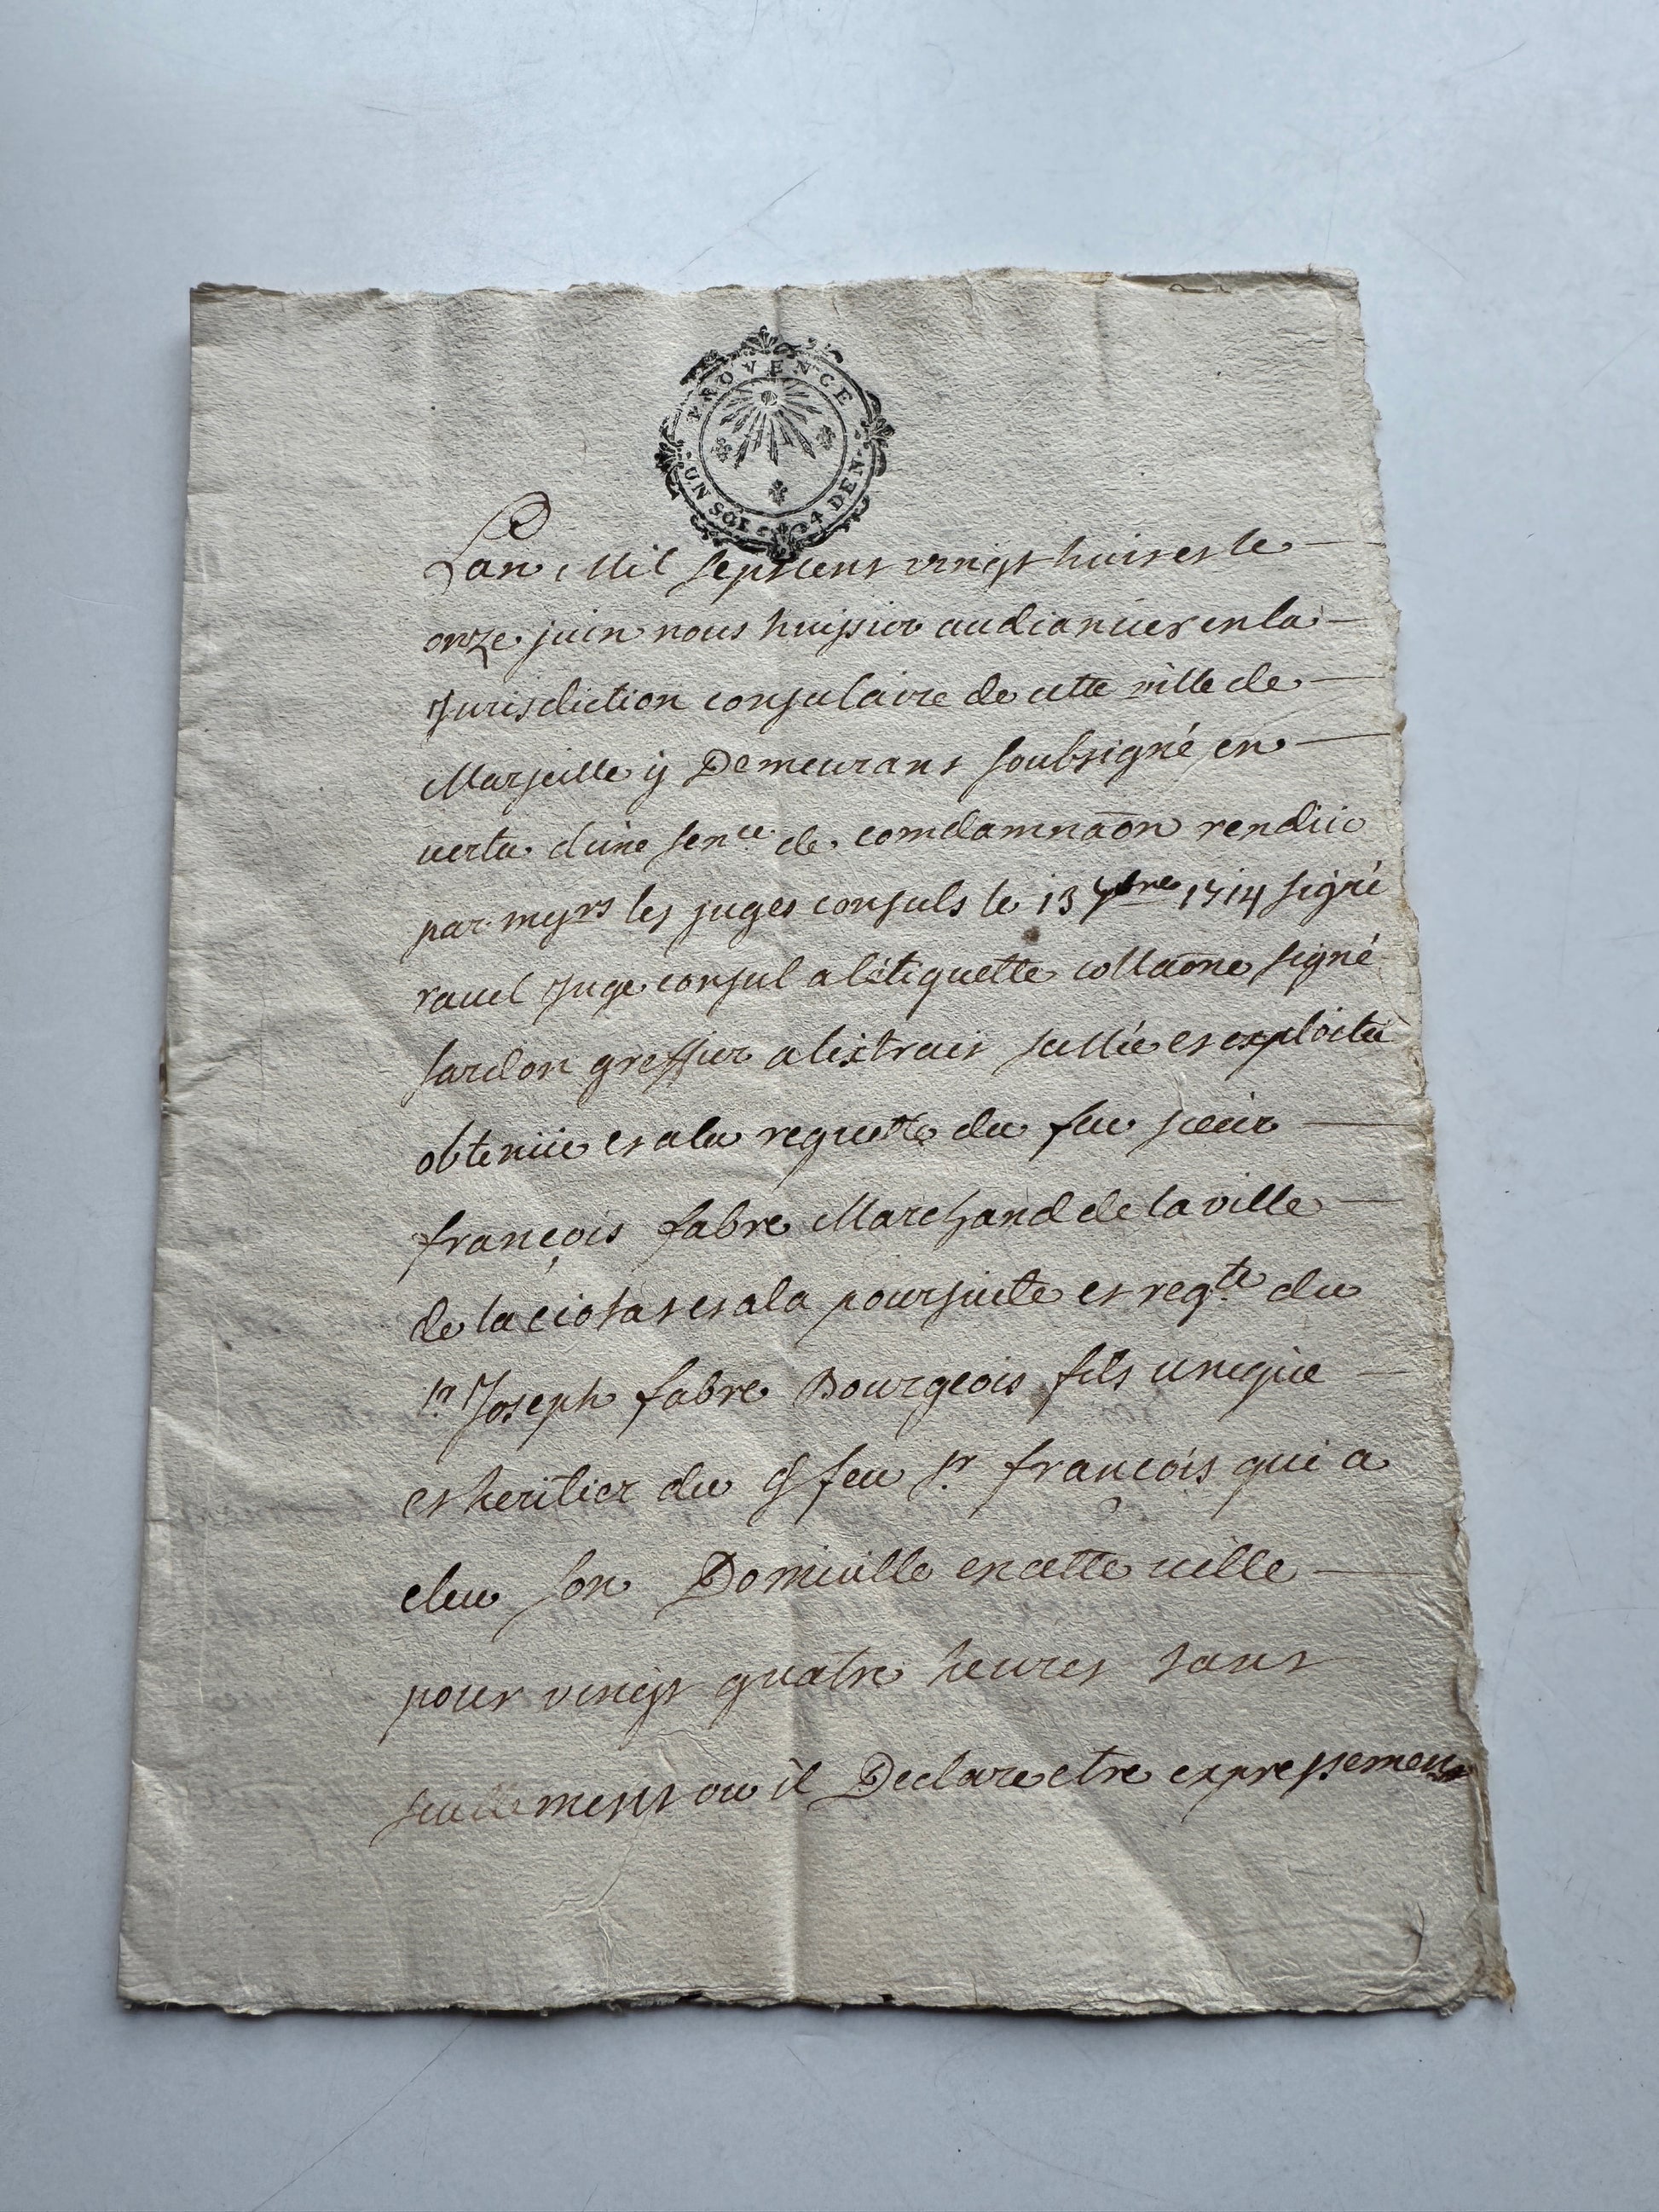 PROVENCE
UN SOL 4 DEN.
Lan Mil septcens vingt huit et le
onze juin nous huissier audiancier en la
Jurisdiction consulaire de cette ville de
Marseille y Demeurant soubsigné en
vertu dune sence. de comdamnaôn rendüe
par messrs les juges consuls le 13 7bre 1714 signé
ravel Juge consul a létiquette collaône signé
sardon greffier a lextrait sellée et exploitée
obtenüe et a la requette du feu sieur
françois fabre Marchand de la ville
de la ciotat et a la poursuitte et reqte du
sr Joseph fabre Bourgeois fils unique
et heritier du feu sr françois qui a
eleu son Domicille en cette ville
pour vingt quatre heures tant
seulement ou il Declare etre expressement